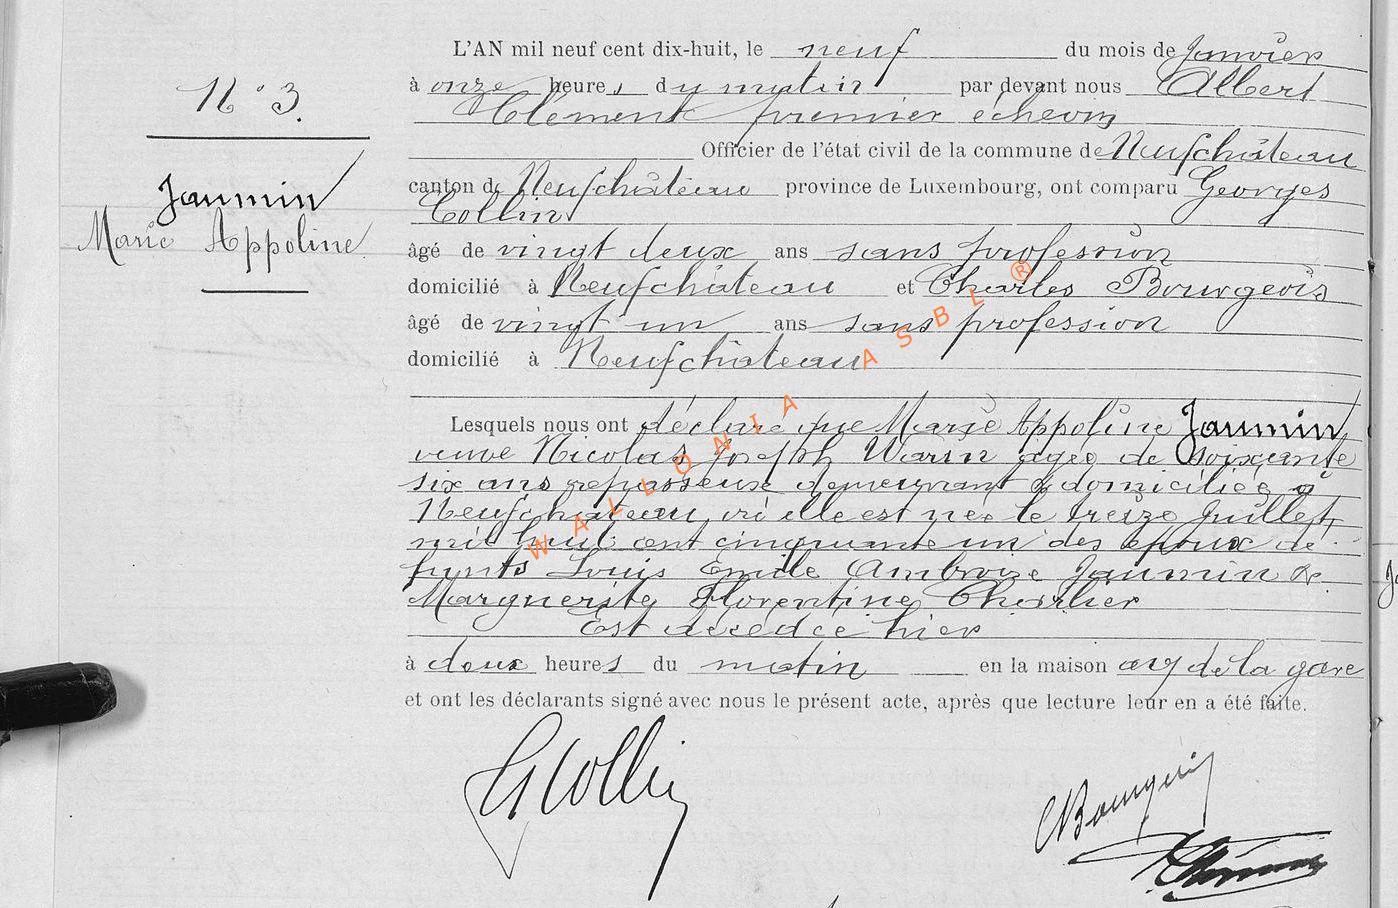 N° 3.
Jaumin
Marie Appoline
L'AN mil neuf cent dix-huit, le neuf du mois de Janvier
à onze heures du matin par devant nous Albert
Clément premier échevin
Officier de l'état civil de la commune de Neufchâteau
canton de Neufchâteau province de Luxembourg, ont comparu Georges
Collin
âgé de vingt deux ans sans profession
domicilié à Neufchâteau et Charles Bourgeois
âgé de vingt un ans sans profession
domicilié à Neufchâteau
Lesquels nous ont déclaré que Marie Appoline Jaumin
veuve Nicolas Joseph Warin agée de Soixante
six ans repasseuse demeurant & domiciliée à
Neufchateau où elle est née le treize Juillet
mil huit cent cinquante un des époux dé-
funts Louis Emile Ambroise Jaumin &
Marguerite Florentine
Est décédée hier
à deux heures du matin en la maison de la gare
et ont les déclarants signé avec nous le présent acte, après que lecture leur en a été faite.
G Collin
CBourgeois
Clément
WALLONIA ASBL ®